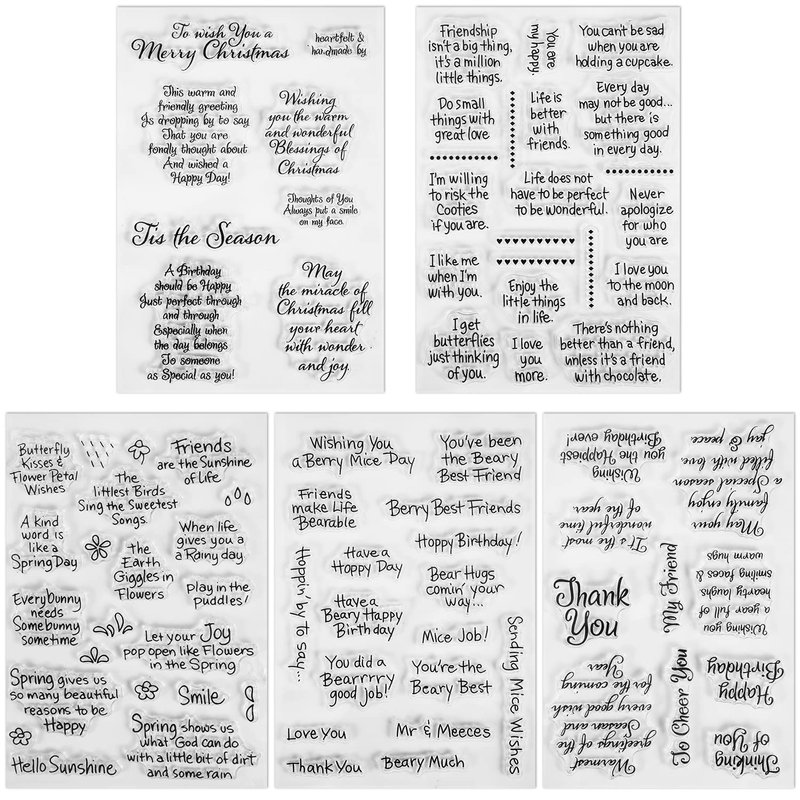 To wish You a
Merry Christmas
heartfelt &
handmade by
This warm and
friendly greeting
Is dropping by to say
That you are
fondly thought about
And wished a
Happy Day!
Wishing
you the warm
and wonderful
Blessings of
Christmas
Thoughts of You
Always put a smile
on my face.
Tis the Season
A Birthday
should be Happy
Just perfect through
and through
Especially when
the day belongs
To someone
as Special as you!
May
the miracle of
Christmas fill
your heart
with wonder
and joy
Friendship
isn't a big thing,
it's a million
little things.
You are
my happy.
You can't be sad
when you are
holding a cupcake.
Do small
things with
great love.
Life is
better
with
friends.
Every day
may not be good...
but there is
something good
in every day.
I'm willing
to risk the
Cooties
if you are.
Life does not
have to be perfect
to be wonderful.
Never
apologize
for who
you are
I like me
when I'm
with you.
Enjoy the
little things
in life.
I love you
to the moon
and back.
I get
butterflies
just thinking
of you.
I love
you
more.
There's nothing
better than a friend,
unless it's a friend
with chocolate.
Butterfly
Kisses &
Flower Petal
Wishes
Friends
are the Sunshine
of Life
The
littlest Birds
Sing the Sweetest
Songs.
A Kind
word is
like a
Spring Day
the
Earth
Giggles in
Flowers
When life
gives you a
a Rainy day
play in the
puddles!
Everybunny
needs
Somebunny
sometime
Let your Joy
pop open like Flowers
in the Spring
Spring gives us
so many beautiful
reasons to be
Happy
Smile
Spring shows us
what God can do
with a little bit of dirt
and some rain
Hello Sunshine
Wishing You
a Berry Mice Day
You've been
the Beary
Best Friend
Friends
make Life
Bearable
Berry Best Friends
Hoppy Birthday!
Hoppin' by to say...
Have a
Hoppy Day
Bear Hugs
comin' your
way...
Have a
Beary Happy
Birthday
Mice Job!
Sending Mice Wishes
You did a
Bearrrry
good job!
You're the
Beary Best
Love You
Mr & Meeces
Thank You
Beary Much
Wishing
you the Happiest
Birthday ever!
May your
family enjoy
a Special season
filled with love
joy & peace
It's the most
wonderful time
of the year
Thank
You
My Friend
Wishing you
a year full of
hearty laughs
smiling faces &
warm hugs
Warmest
greetings of the
Season and
every good wish
for the coming
Year
To Cheer You
Happy
Birthday
Thinking
of You